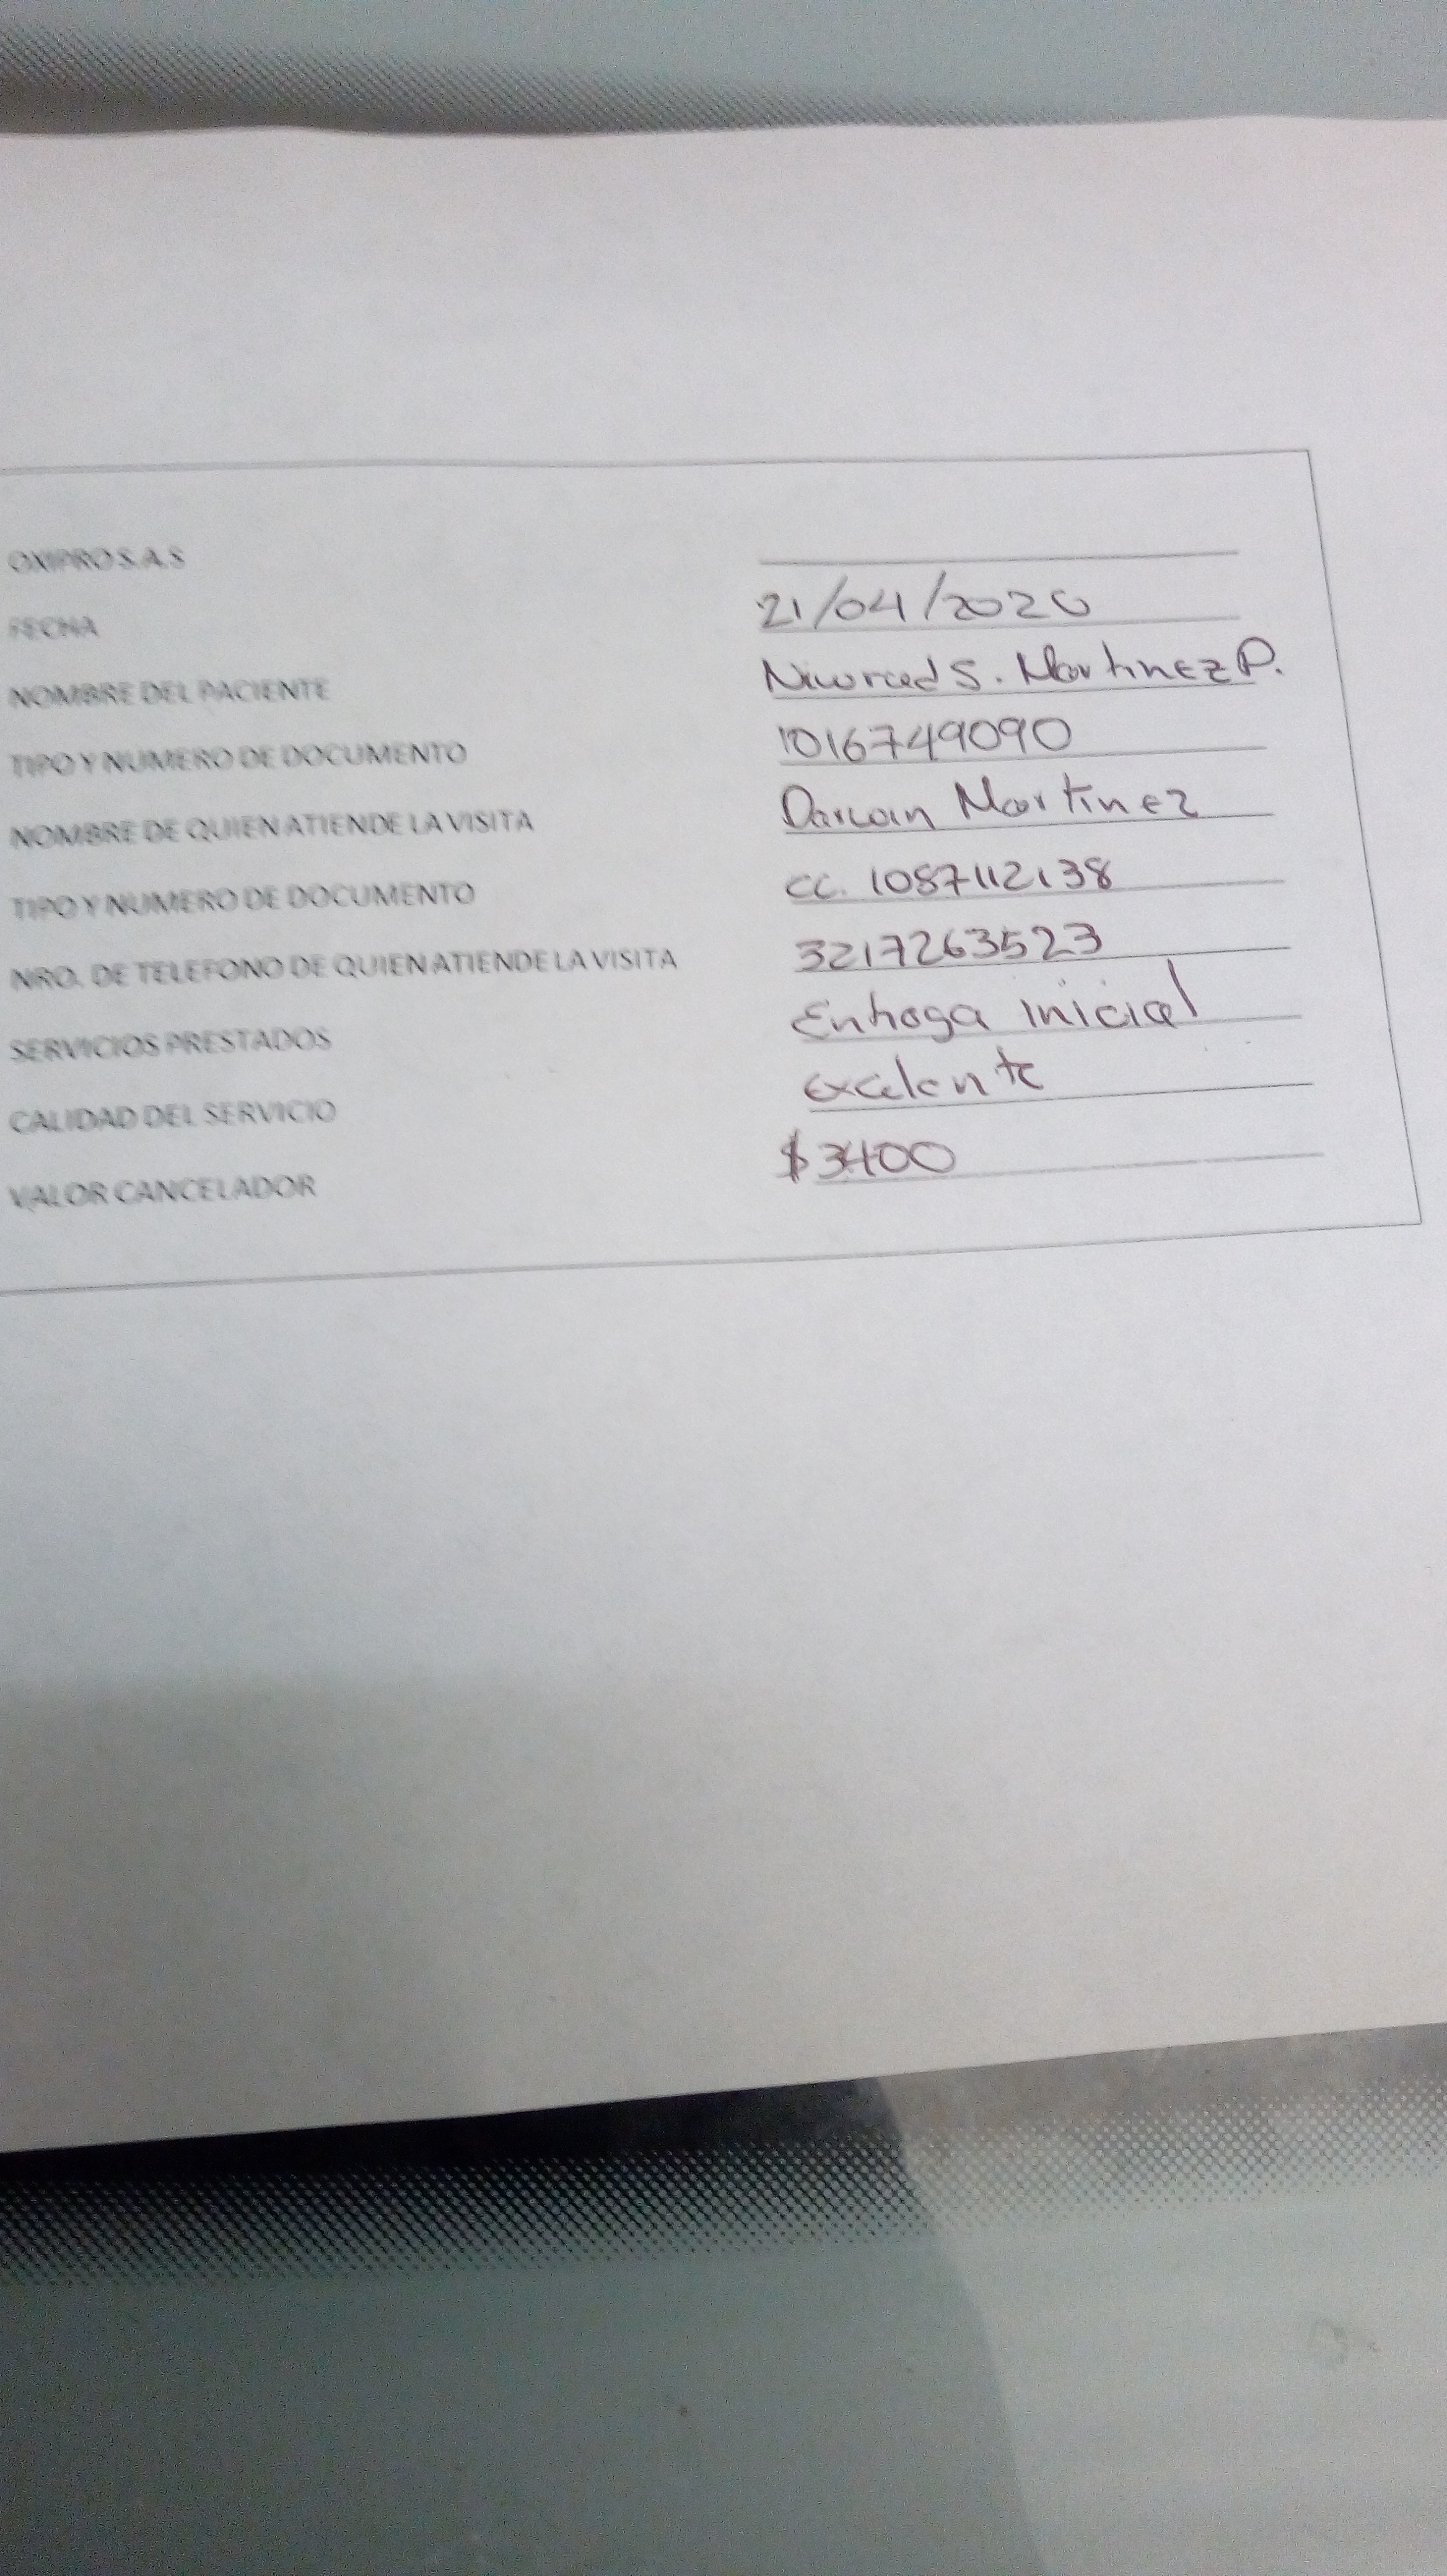 OXIPRO S.A.S
FECHA 21/04/2020
NOMBRE DEL PACIENTE S. Martinez P.
TIPO Y NUMERO DE DOCUMENTO 1016749090
NOMBRE DE QUIEN ATIENDE LA VISITA Darwin Martinez
TIPO Y NUMERO DE DOCUMENTO CC. 1087112138
NRO. DE TELEFONO DE QUIEN ATIENDE LA VISITA 3217263523
SERVICIOS PRESTADOS Entrega inicial
CALIDAD DEL SERVICIO excelente
VALOR CANCELADOR $3400